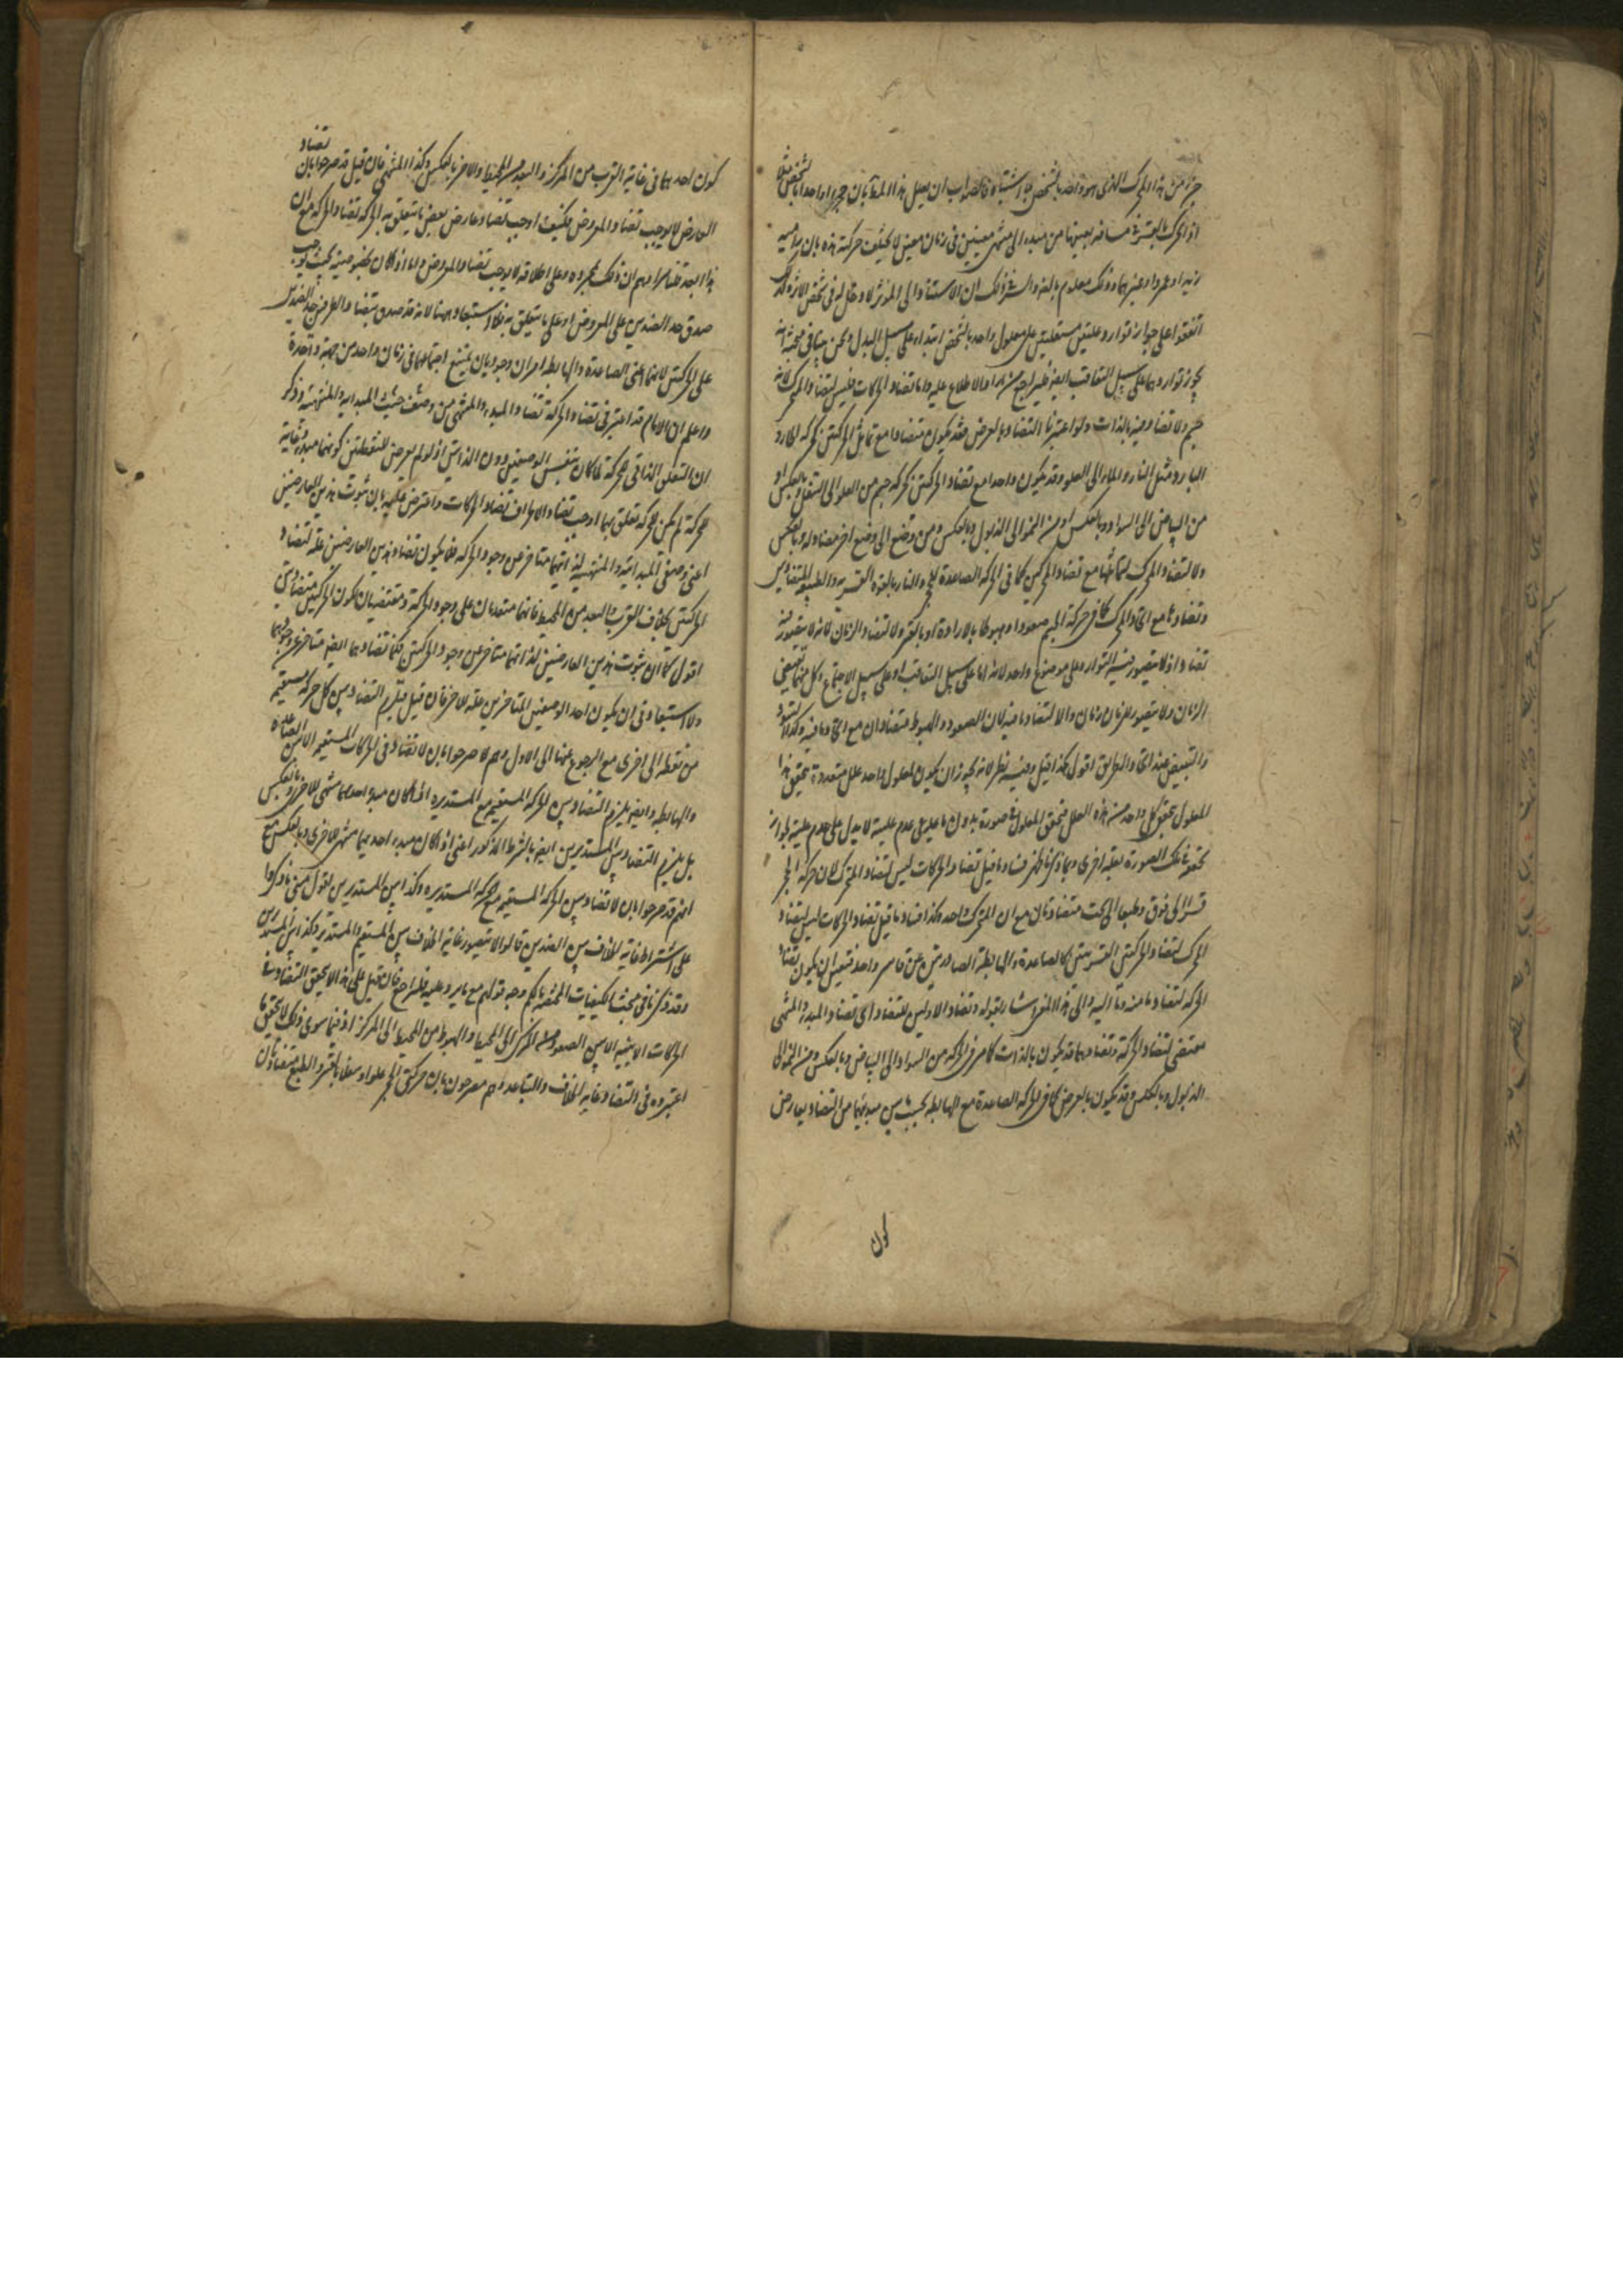 جزء من هذا المحرك الذى هو واحد بالشخص بلا اشتباه فالصواب ان يعلل هذا المدعا بان حجرا واحدا بالشخص مثلا
اذا تحرك بالقسر فى مسافة بعينها من مبدء الى منتهى معينين فى زمان معين لا يختلف حركته هذه بان راميه
زيد او عمرو او غيرهما وذلك معلوم بالضرورة والسر فى ذلك ان الاستناد الى المؤثر لا دخل له فى تشخص الاثر ولذلك
اتفقوا على جواز توارد علتين مستقلتين على معلول واحد بالشخص ابتداء على سبيل البدل
يجوز تواردهما على سبيل التعاقب ايضا فليراجع من اراد الاطلاع عليه واما تضاد الحركات فليس لتضاد المحرك لانه
جسم ولا تضاد فيه بالذات ولو اعتبرنا التضاد بالعرض فقد يكون متضادا مع تماثل الحركتين كحركة الحار و
البارد مثل النار والماء الى العلو وقد يكون واحدا مع تضاد الحركتين كحركة جسم من العلو الى السفل وبالعكس او
من البياض الى السواد وبالعكس او من النمو الى الذبول وبالعكس ومن وضع الى وضع اخر مضاد له وبالعكس
ولا لتضاد المحرك لتماثلها مع تضاد المحركين كما فى الحركة الصاعدة للحجر والنار بالقوة القسرية والطبيعية المتضادتين
وتضادها مع اتحاد المحرك كما فى حركة الجسم صعودا وهبوطا بالارادة او بالقسر ولا لتضاد الزمان لانه لا يتصور فيه
تضاد اذ لا يتصور فيه التوارد على موضوع واحد لانه اما على سبيل التعاقب او على سبيل الاجتماع وكل منهما يقتضى
الزمان ولا يتصور للزمان زمان ولا لتضاد ما فيه لان الصعود والهبوط متضادان مع اتحاد ما فيه وكذلك التسود
والتبييض عند اتحاد الطريق اقول هكذا قيل وفيه نظر لانه يجوز ان يكون لمعلول واحد علل متعددة يتحقق هذا
المعلول بتحقق كل واحد من هذه العلل فتحقق المعلول فى صورة بدون ما يدعى عدم عليته لا يدل على عدم عليته لجواز
تحققه فى تلك الصورة بعلة اخرى وبما ذكرنا ظهر فساد ما قيل تضاد الحركات ليس لتضاد المتحرك لان حركة الحجر
قسرا الى فوق وطبعا الى تحت متضادتان مع ان المتحرك واحد وكذا فساد ما قيل تضاد الحركات ليس لتضاد
المحرك لتضاد الحركتين القسريتين كالصاعدة والهابطة الصادرتين عن قاسر واحد فتعين ان يكون تضاد
الحركة لتضاد ما منه وما اليه والى هذا المعنى اشار بقوله وتضاد الاولين للتضاد اى تضاد المبدء والمنتهى
مقتضى لتضاد الحركة وتضادهما قد يكون بالذات كما مر فى الحركة من السواد الى البياض وبالعكس ومن النمو الى
الذبول وبالعكس وقد يكون بالعرض كما فى الحركة الصاعدة مع الهابطة بحيث بين مبدئيهما من التضاد بعارض
كون
كون احدهما فى غاية القرب من المركز والبعد من المحيط والاخر بالعكس وكذا المنتهى فان قيل قد صرحوا بان تضاد
العارض لا يوجب تضاد المعروض فكيف اوجب تضاد عارض بعض ما يتعلق به الحركة تضاد الحركة مع ان
هذا ابعد قلنا مرادهم ان ذلك بمجرده وعلى اطلاقه لا يوجب تضاد المعروض واما اذا كان بخصوصيته بحيث يوجب
صدق حد الضدين على المعروض او على ما يتعلق به فلا استبعاد وههنا لانه قد صدق بتضاد العارض حد الضدين
على الحركتين لانهما اعنى الصاعدة والهابطة امران وجوديان يمتنع اجتماعهما فى زمان واحد من جهة واحدة
واعلم ان الامام قد اعتبر فى تضاد الحركة تضاد المبدء والمنتهى من حيث المبدائية والمنتهائية وذكر
ان التعلق الذاتى للحركة لما كان بنفس الوصفين دون الذاتين اذ لو لم يعرض للنقطتين كونهما مبدء وغاية
للحركة لم يكن للحركة تعلق بهما اوجب تضاد الاطراف تضاد الحركات واعترض عليه بان ثبوت هذين العارضين
اعنى وصفى المبدائية والمنتهائية لذاتيهما متأخر عن وجود الحركة فلا يكون تضاد هذين العارضين علة لتضاد
الحركتين بخلاف القرب والبعد من المحيط فانهما متقدمان على وجود الحركة ومقتضيان لكون الحركتين متضادتين
اقول كما ان ثبوت هذين العارضين لذاتيهما متأخر عن وجود الحركتين فكذا تضادهما ايضا متأخر عن وجودهما
ولا استبعاد فى ان يكون احد الوصفين المتأخرين علة للاخر فان قيل فيلزم التضاد بين كل حركة مستقيمة
من نقطة الى اخرى مع الرجوع عنها الى الاول وهم لا صرحوا بان لا تضاد فى الحركات المستقيمة الا بين الصاعدة
والهابطة وايضا يلزم التضاد بين الحركة المستقيمة مع المستديرة اذا كان مبدء احدهما منتهى للاخرى وبالعكس
بل يلزم التضاد بين المستديرين ايضا بالشرط المذكور اعنى اذا كان مبدء احديهما منتهى للاخرى وبالعكس مع
انهم قد صرحوا بان لا تضاد بين الحركة المستقيمة مع الحركة المستديرة وكذا بين المستديرين نقول مبنى ما ذكروا
على اشتراط غاية الخلاف بين الضدين قالوا لا يتصور غاية الخلاف بين المستقيم والمستدير وكذا بين المستديرين
وقد ذكرنا فى مبحث الكيفيات المختصة بالكم وجه قولهم مع ما يرد عليه فليراجع فان قيل على هذا لا يتحقق التضاد فى
الحركات الاينية الا بين الصعود من المركز الى المحيط والهبوط من المحيط الى المركز اذ فيما سوى ذلك لا يتحقق ما
اعتبروه فى التضاد غاية الخلاف والتباعد وهم مصرحون بان حركتى الحجر علوا وسفلا بالقسر والطبع متضادتان